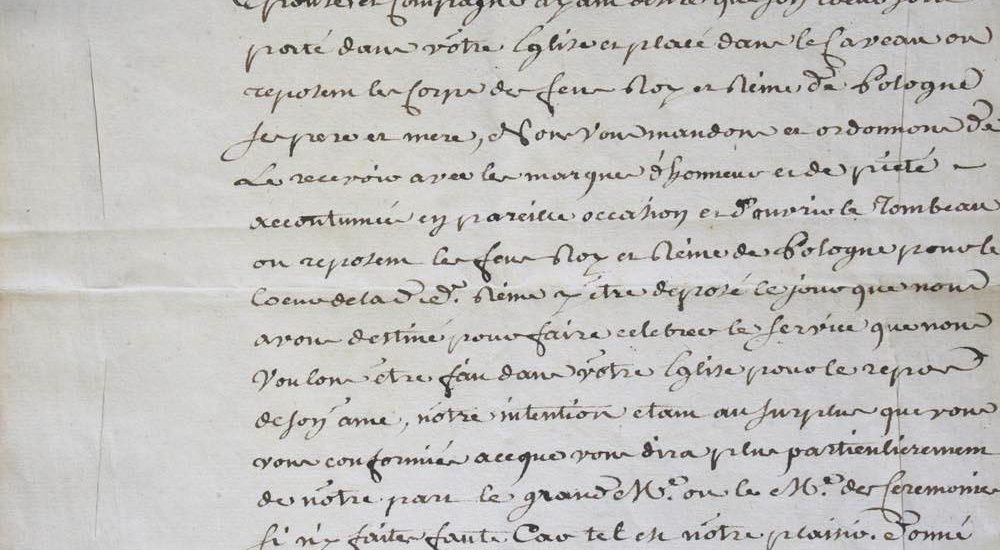 Epouse et Compagne ayant desiré que son coeur soit
porté dans vôtre Eglise et placé dans le Caveau ou
reposent les Corps des feus Roy et Reine de Pologne
ses pere et mere, Nous vous mandons et ordonnons de
le recevoir avec les marques d'honneur et de pieté
accoutumées en pareille occasion et d'ouvrir le Tombeau
ou reposent les feus Roy et Reine de Pologne pour le
Coeur de lad. e d. Reine y être deposé le jour que nous
avons destiné pour faire celebrer le service que nous
Voulons être fait dans vôtre Eglise pour le repos
de son ame, nôtre intention etant au surplus que vous
vous conformiés a ce que vous dira plus particulierement
de nôtre part le grand M.e ou le M.e des Ceremonies
Si n'y faites faute Car tel est nôtre plaisir. Donné